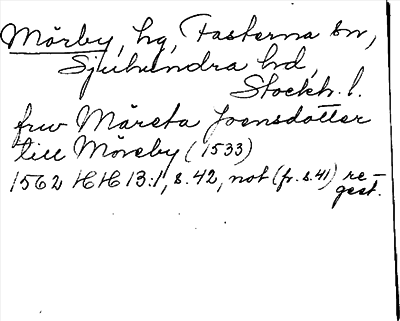 Mörby, hg, Fasterna sn,
Sjuhundra hd,
Stockh. l.
fru Märeta Joensdotter
till Möreby (1533)
1562 HH 13:1, s. 42, not (fr. s. 41) re-
gest.